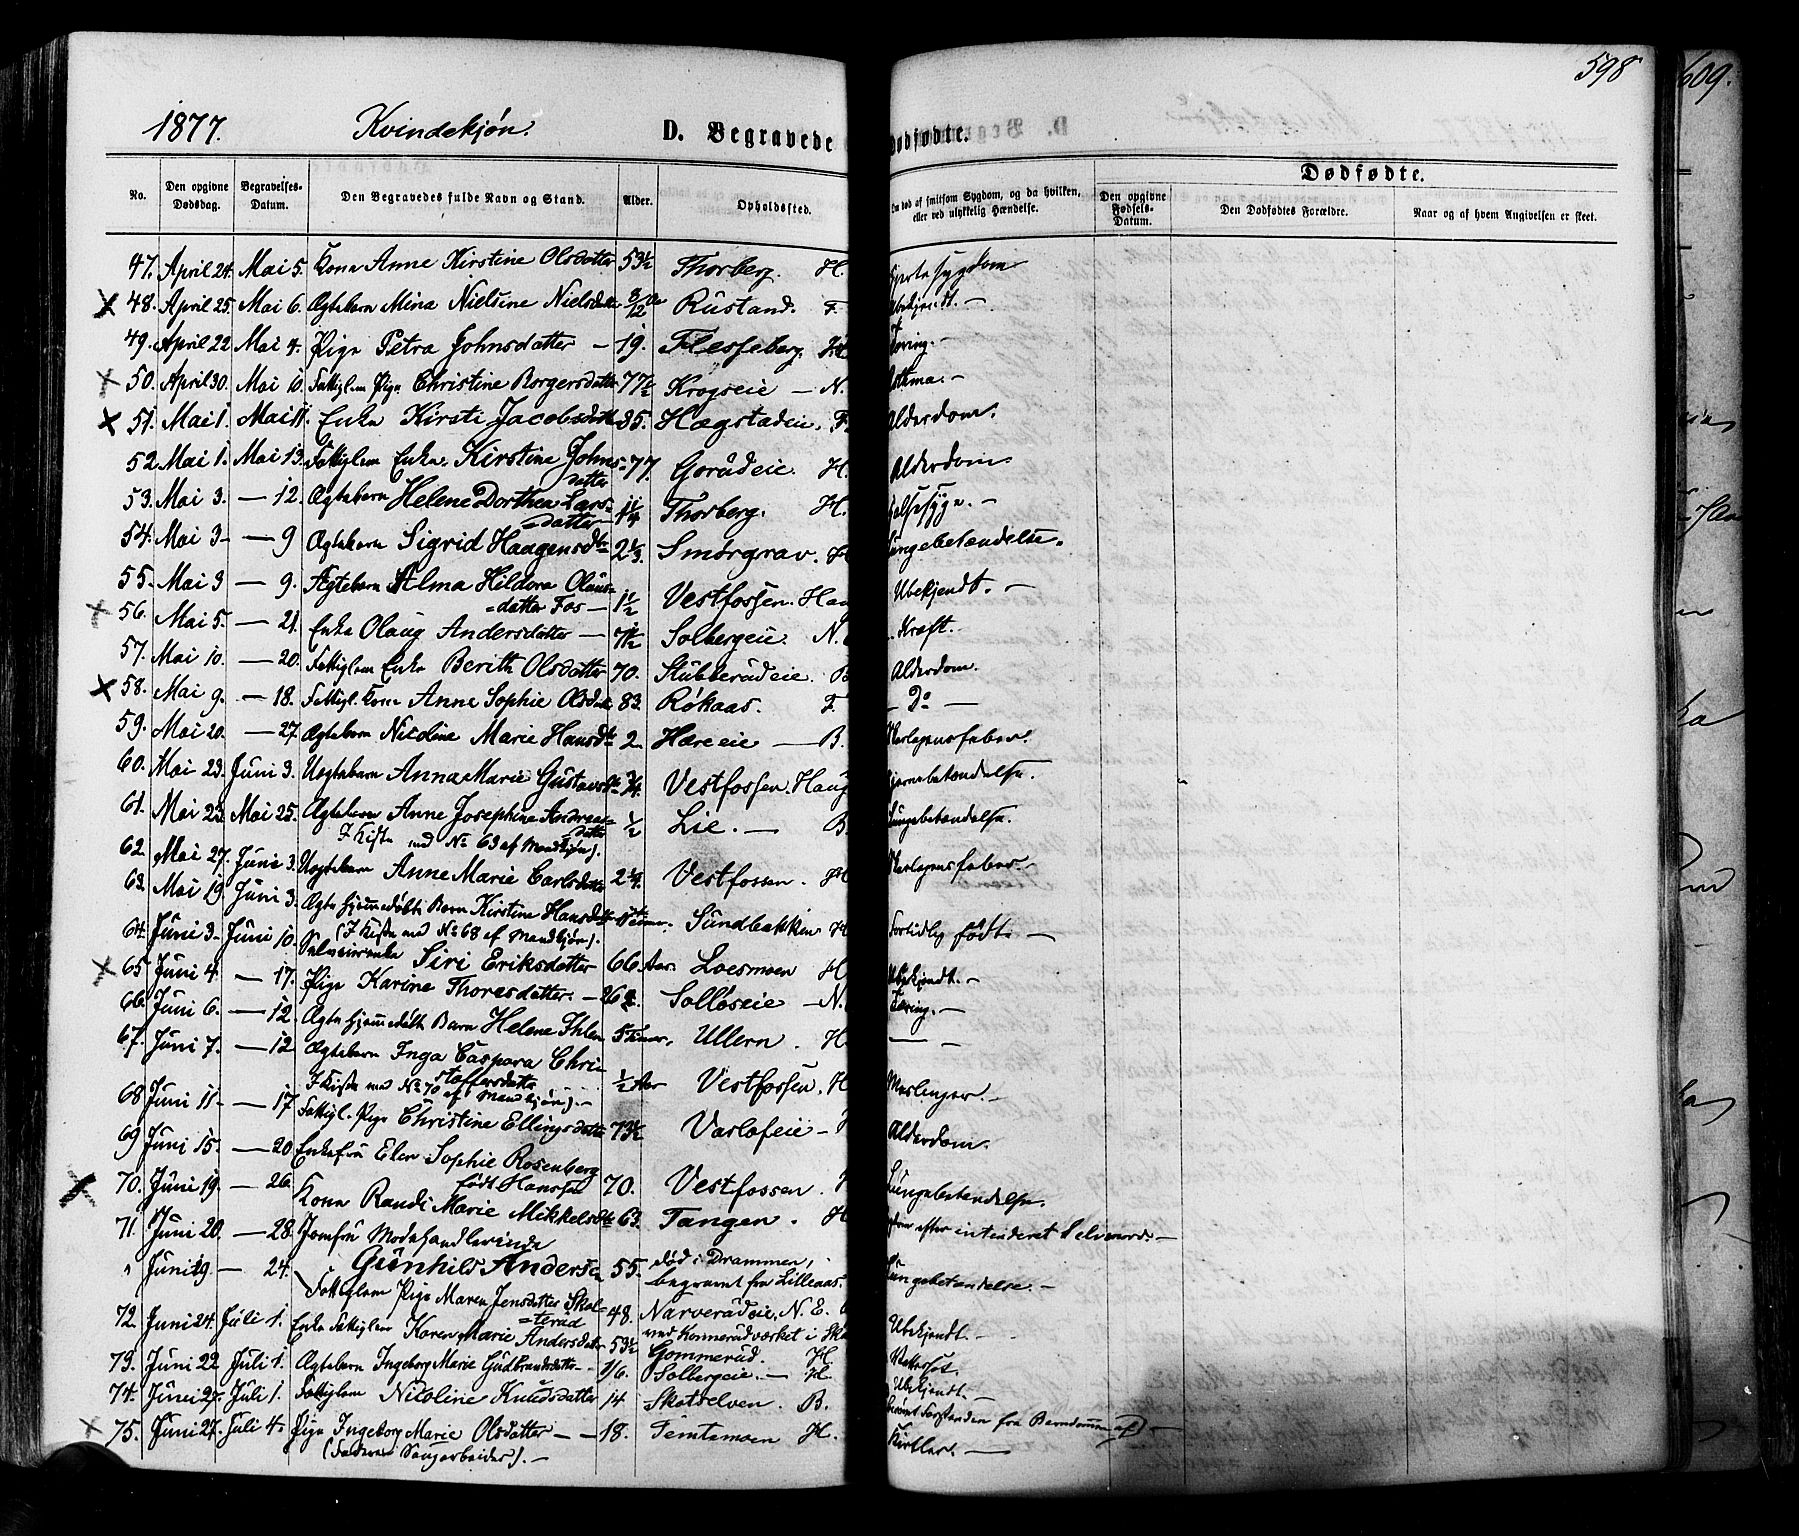 598
609.
1877. Kvindekjøn. D. Begravede Dødfødte.
Dødfødte.
No. Den opgivne Dødsdag. Begravelses-Datum. Den Begravedes fulde Navn og Stand. Alder. Opholdssted. Om død af smitsom Sygdom, og da hvilken, eller ved ulykkelig Hændelse. Den opgivne Fødsels-Datum. Den Dødfødtes Forældre. Naar og af hvem Angivelsen er skeet.
47. April 24. Mai 5. Kona Anne Kirstine Olsdatter 53½ Thorberg. H. Hjertesygdom
48. April 25. Mai 6. Ægtebarn Mina Nielsine Nielsdatter 8/12 Rustand. F. Ubekjendt. —
49. April 22 Mai 4. Pige Petra Johnsdatter — 19. Flesseberg. H. Tæring. —
50. April 30. Mai 10. Fattiglem Pige Christine Borgersdatter 77½ Krogseie — N. Asthma. —
51. Mai 1. Mai 11. Enke Kirsti Jacobsdatter 85. Hægstadeie. F. Alderdom.
52 Mai 1. Mai 13. Fattiglem Enke. Kirstine Johns= 77. Goradeie. H. Alderdom.
datter
53. Mai 3. — 12. Ægtebarn Helene Dorthea Lars= 1¼ Thorberg. H. Halssyge. —
datter —
54. Mai 3 — 9 Ægtebarn Sigrid Haagensdtr 2⅓. Smørgrav. H Lungebetændelse.
55. Mai 3 — 9. Ægtebarn Alma Hildora Olaus= 1½ Vestfossen. Haug Ubekjendt. —
=datter Fos —
56. Mai 5. — 21. Enke Olaug Andersdatter — 71½ Solbergeie. N. Kræft.
57. Mai 10. — 20. Fattiglem Enke Berith Olsdatter 70. Stubberudeie. B Alderdom.
58. Mai 9. — 18. Fattigl. Kone Anne Sophie Olsdatter 83. Røkaas. F. — Do —
59. Mai 20. — 27. Ægtebarn Nicoline Marie Hansdtr 2. Hareeie — B. Skarlagensfeber.
60. Mai 23. Juni 3. Uægtebarn Anna Marie Gustavsdtr ¾. Vestfossen. Haug Hjernebetændelse.
61. Mai 23. Mai 25. Ægtebarn Anne Josephine Andreas= ½ Lie. — B. Lungebetændelse.
datter
I Kiste med No 63 af Mandkjøn).
62. Mai 27. Juni 3. Uægtebarn Anne Marie Carlsdatter 2¼. Vestfossen. H Skarlagensfeber. —
63. Mai 19 Juni 3. Ægte hjemmedøbt Barn Kirstine Hansdtr Timer. Sundbakken H Fortidlig født. —
(I Kiste med No 68 af Mandkjøn).
64. Juni 3. Juni 10. Siri Eriksdatter 66 Aar. Loesmoen H Ubekjendt. —
65 Juni 4. — 17. Pige Karine Thoresdatter. — 26 Solløseie — N. Tæring. —
66. Juni 6. — 12. Ægte hjemmedøbt Barn Helene Ihlen 5 Timer. Ullern. H. — —
67. Juni 7. — 12 Ægtebarn Inga Caspara Chri= ½ Aar Vestfossen. H Meslinger. —
stoffersdatter
I Kiste med No 70 af Mandkjøn). —
68 Juni 11 — 17 Fattigl. Pige Christine Ellingsdatter 73½ Varlofeie — H Alderdom.
69 Juni 15. — 20 Enkefru Elen Sophie Rosenberg 70. Vestfossen. H Lungebetændelse.
født Hanssen
70. Juni 19. — 26. Kone Randi Marie Mikkelsdtr 63. Tangen. H. efter intenderet Selvmord. —
71. Juni 20. — 28. Jomfru Modehandlerinde
" Juni 19. — 24. Gunhild Andersen 55. død i Drammen, Lungebetændelse. —
begravet fra Lilleaas.
72. Juni 24. Juli 1. Fattiglem Pige Maren Jensdatter Skol= 48. Narverudeie, N. E. Ubekjendt. —
=terud
Enke Fattiglem Karen Marie Andersdatter 53½ ved Konnerudværket i Skoger
73. Juni 22 Juli 1. Ægtebarn Ingeborg Marie Gudbrandsdatter — 1/6. Gommerud. H Vattersot.
Solbergeie. — H Ubekjendt. —
74. Juni 27. Juli 1. Fattiglem Nicoline Knudsdatter 14 Skotselven. B. Forstanden fra Barndommen af) —
75. Juni 27. Juli 4. Pige Ingeborg Marie Olsdatter — — 18. Temtemoen H. Kirtler. —
(Faderen Saugarbeider). —